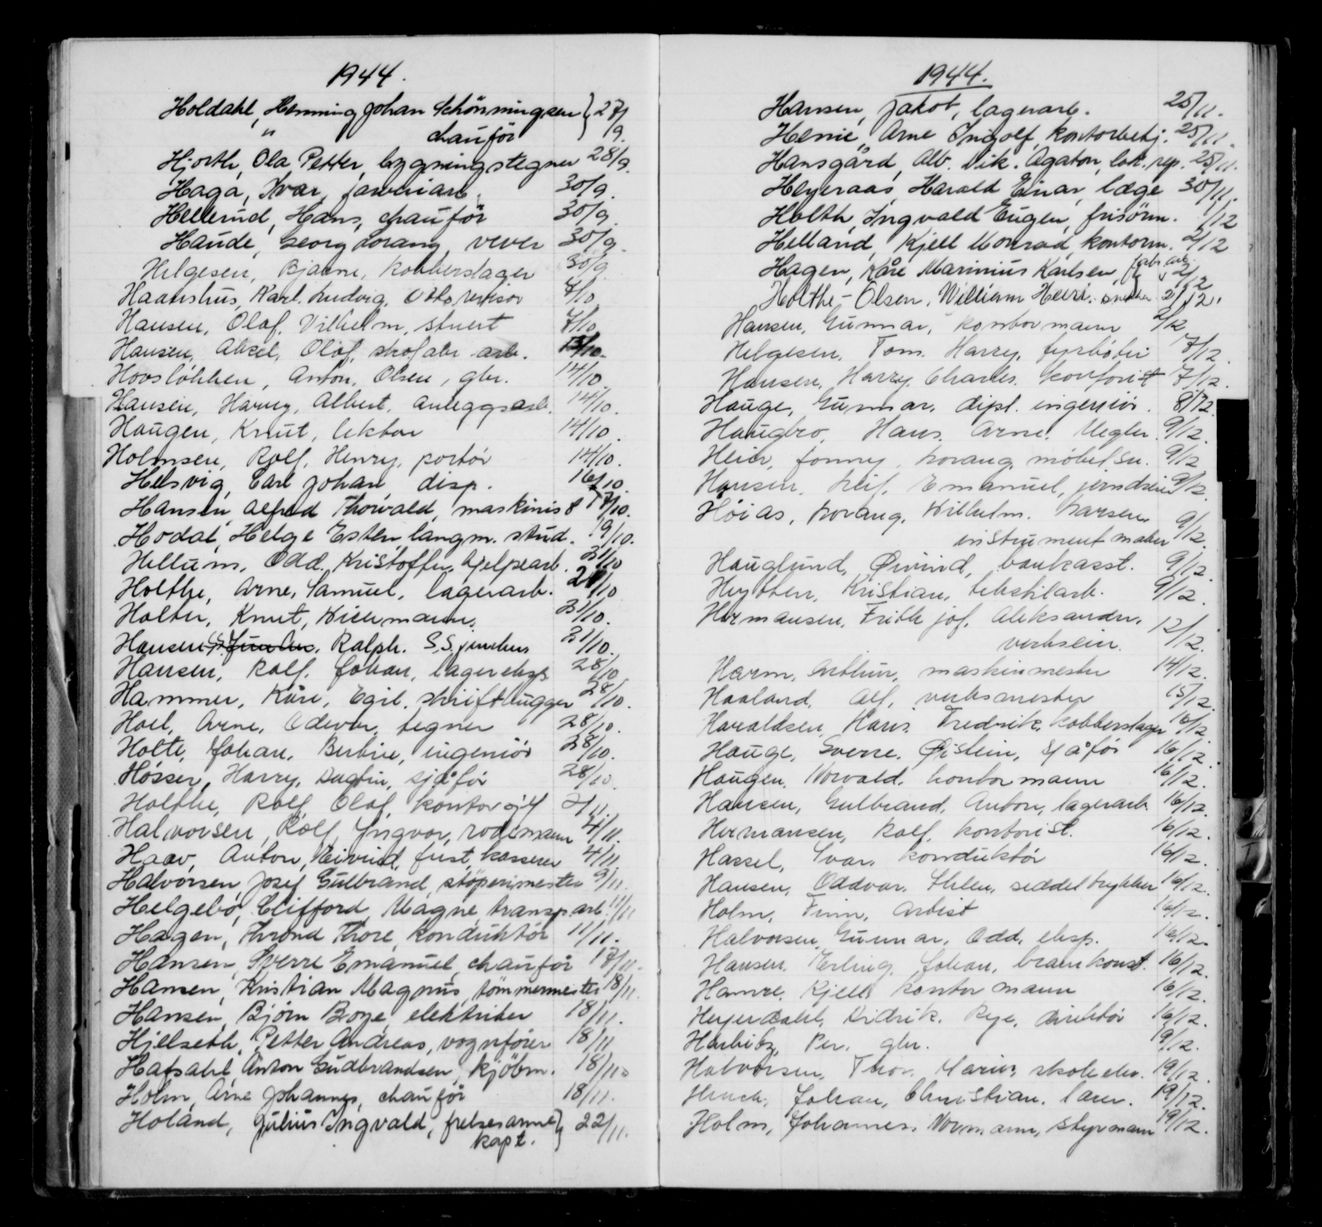 1944.
Holdahl, Henning Johan Schönningsen } 27/9.
" chauför
Hjorth, Ola Petter, bygningstegner 28/9.
Haga, Ivar, 30/9.
Hellerud, Hans, chauför 30/9.
Haude, Georg Lorang, vever 30/9.
Helgesen, Bjarne, kobberslager 30/9
Haanshus, Karl Ludvig, revisor 7/10
Hansen, Olaf, Vilhelm, stuert 7/10
Hansen, Aksel, Olaf, skofabr arb. /10.
Hovsløkken, Anton, Olsen, gbr. 14/10.
Hansen, Harry, Albert, anleggsarb. 14/10.
Haugen, Knut, lektor 14/10.
Holmsen, Rolf, Henry, portör 14/10.
Helsvig Carl Johan disp. 16/10.
Hansen, Alfred Thorvald, maskinist 17/10.
Hodal, Helge Esten langm. stud. 19/10.
Hellum, Odd, Kristoffer, hjelpearb. 21/10
Holthe, Arne, Samuel, lagerarb. 21/10
Holter, Knut, Wiermann, 21/10.
Hansen, Ralph. S.S. junkers 21/10.
Hansen, Rolf, Johan, lagereksp 28/10.
Hammer, Kåre, Egil, skrifthugger 28/10.
Hoel, Arne, Odvar, tegner 28/10.
Holte, Johan, Bertin, ingeniör 28/10.
Høsser, Harry, Dagfin, sjåför 28/10.
Holthe, Rolf, Olaf, kontorsjef 2/11.
Halvorsen, Rolf, Yngvar, rodemann 4/11.
Haav, Anton, Eivind, first kasserer 4/11
Halvorsen Josef Gulbrand, stöperimester 9/11.
Helgebø, Clifford Magne, transp. arb. 11/11
Hagen, Thrond Thore, konduktör 11/11.
Hansen, Sverre Emanuel, chauför 17/11.
Hansen, Kristian Magnus, tømmermester 18/11.
Hansen, Björn Boye, elektriker 18/11.
Hjelseth, Petter Andreas, vognfører 18/11
Hafsahl Anton Gudbrandsen, kjöbm. 18/11.
Holm, Arne Johannes, chauför 18/11.
Holand, Julius Ingvald, frelsesarme } 22/11.
kapt.
1944.
Hansen, Jakob, lagerarb. 25/11.
Henie, Arne Ingolf, kontorbetj. 25/11.
Hansgård, Alb. Vik. Agaton, lok. rep. 25/11.
Heyeraas, Harald Einar, læge 30/11.
Holth, Ingvald Eugen, frisörm. 1/12
Helland, Kjell Monrad, kontorm. 2/12
Hagen, Kåre Marinius Karlsen, fabr. arb. 2/12
Holthe-Olsen, William Henri. snekker 2/12.
Hansen, Gunnar, kontormann 2/12
Helgesen, Tom. Harry, fyrbøter 7/12.
Hansen, Harry Charles, kontorist 7/12.
Hauge, Gunnar, dipl. ingeniör. 8/12.
Haugbro, Hans. Arne. Megler. 9/12.
Heier, Jonny, Lorang, møbelsn. 9/12
Hansen, Leif. Emanuel, jernsteiner 9/12.
Høiås, Lorang, Wilhelm. Larsen
instrumentmaker 9/12.
Hauglund, Øivind, bankasst. 9/12.
Heytten, Kristian, tekstilarb. 9/12.
Hermansen, Frithjof, Aleksander,
verkseier. 12/12.
Harm, Arthur, maskinmester 14/12.
Haaland, Alf, verksmester 15/12.
Haraldsen, Hans, Fredrik, kobberslager 16/12
Hauge, Sverre, Øistein, sjåför 16/12.
Haugen, Norvald, kontormann 16/12.
Hansen, Gulbrand, Anton, lagerarb. 16/12.
Hermansen, Rolf, kontorist. 16/12.
Hassel, Ivar, konduktör 16/12.
Hansen, Oddvar, Sthlen, seddeltrykker 16/12.
Holm, Finn, Artist 16/12.
Halvorsen, Gunnar, Odd, eksp. 16/12.
Hansen, Erling, Johan, brannkonst. 16/12.
Hamre, Kjell, kontormann 16/12.
Heyerdahl, Didrik, Rye, direktör 16/12.
Harbitz, Per, gbr. 19/12.
Halvorsen, Thor, Marius, skoleelev. 19/12.
Johan, Christian, lærer. 19/12.
Holm, Johannes, Normann, styrmann 19/12.